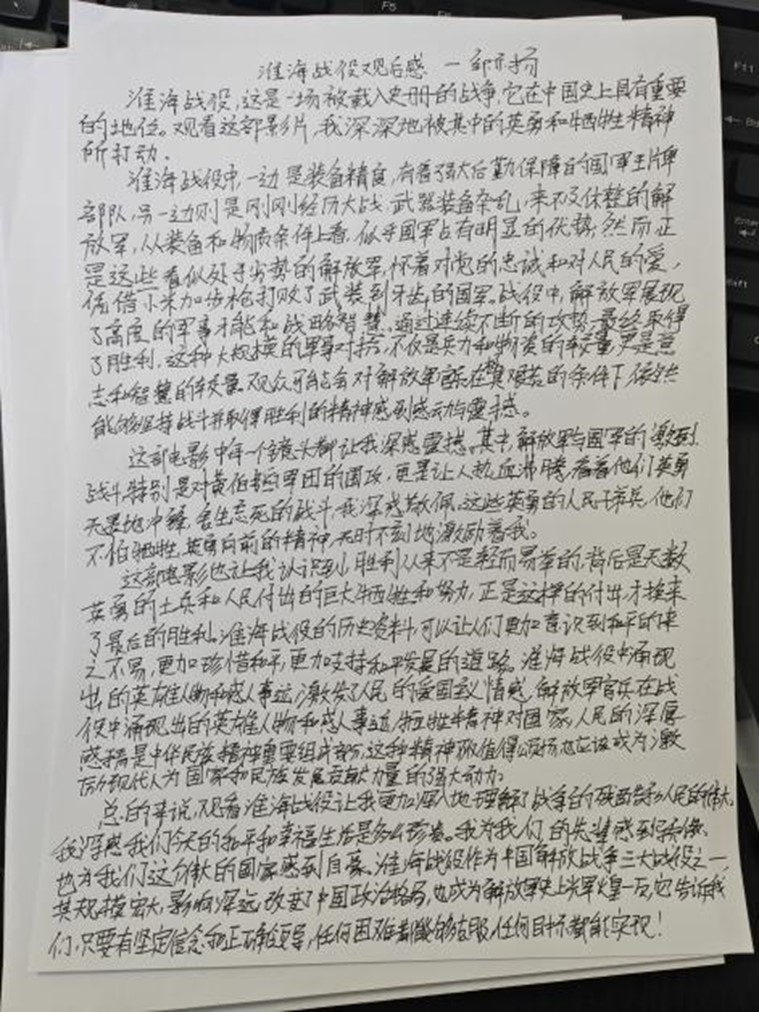 淮海战役观后感 —邹亦扬
淮海战役,这是一场被载入史册的战争,它在中国史上具有重要
的地位。观看这部影片,我深深地被其中的英勇和牺牲精神
所打动.
淮海战役中,一边是装备精良,有着强大后勤保障的国军王牌军
部队,另一边则是刚刚经历大战,武器装备杂乱,来不及休整的解
放军,从装备和物质条件上看,似乎国军占有明显的优势;然而正
是这些看似处于劣势的解放军,怀着对党的忠诚和对人民的爱,
凭借小米加步枪打败了武装到牙齿的国军。战役中,解放军展现
了高度的军事才能和战略智慧。通过连续不断的攻势,最终取得
了胜利,这种大规模的军事对抗,不仅是兵力和物资的较量更是意
志和智慧的较量。观众可能会对解放军官兵在艰苦的条件下,依然
能够坚持战斗并取得胜利的精神感到感动与震撼。
这部电影中每一个镜头都让我深感震撼。其中,解放军与国军的激烈
战斗,特别是对黄伯韬军团的围攻,更是让人热血沸腾,看着他们英勇
无畏地冲锋,舍生忘死的战斗,我深感敬佩。这些英勇的人民子弟兵,他们
不怕牺牲,英勇向前的精神,无时不刻地激励着我。
这部电影也让我认识到,胜利从来不是轻而易举的,背后是无数
英勇的士兵和人民付出的巨大牺牲和努力,正是这样的付出,才换来
了最后的胜利。淮海战役的历史资料,可以让人们更加意识到和平的来
之不易,更加珍惜和平,更加支持和平发展的道路。淮海战役中涌现
出的英雄人物和感人事迹,激发了人民的爱国主义情感,解放军官兵在战
役中涌现出的英雄人物和感人事迹,牺牲精神对国家,人民的深厚
感情是中华民族精神重要组成部分,这种精神极值得颂扬也应该成为激
励现代人为国家和民族发展贡献力量的强大动力。
总的来说,观看淮海战役让我更加深入地理解了战争的残酷和人民的伟大,
我深感我们今天的和平和幸福生活是多么珍贵。我为我们的先辈感到骄傲,
也为我们这个伟大的国家感到自豪。淮海战役作为中国解放战争三大战役之一,
其规模宏大,影响深远,改变了中国政治格局,也成为解放军史上光辉一页,它告诉我
们,只要有坚定信念和正确领导,任何困难都能够克服,任何目标都能实现!